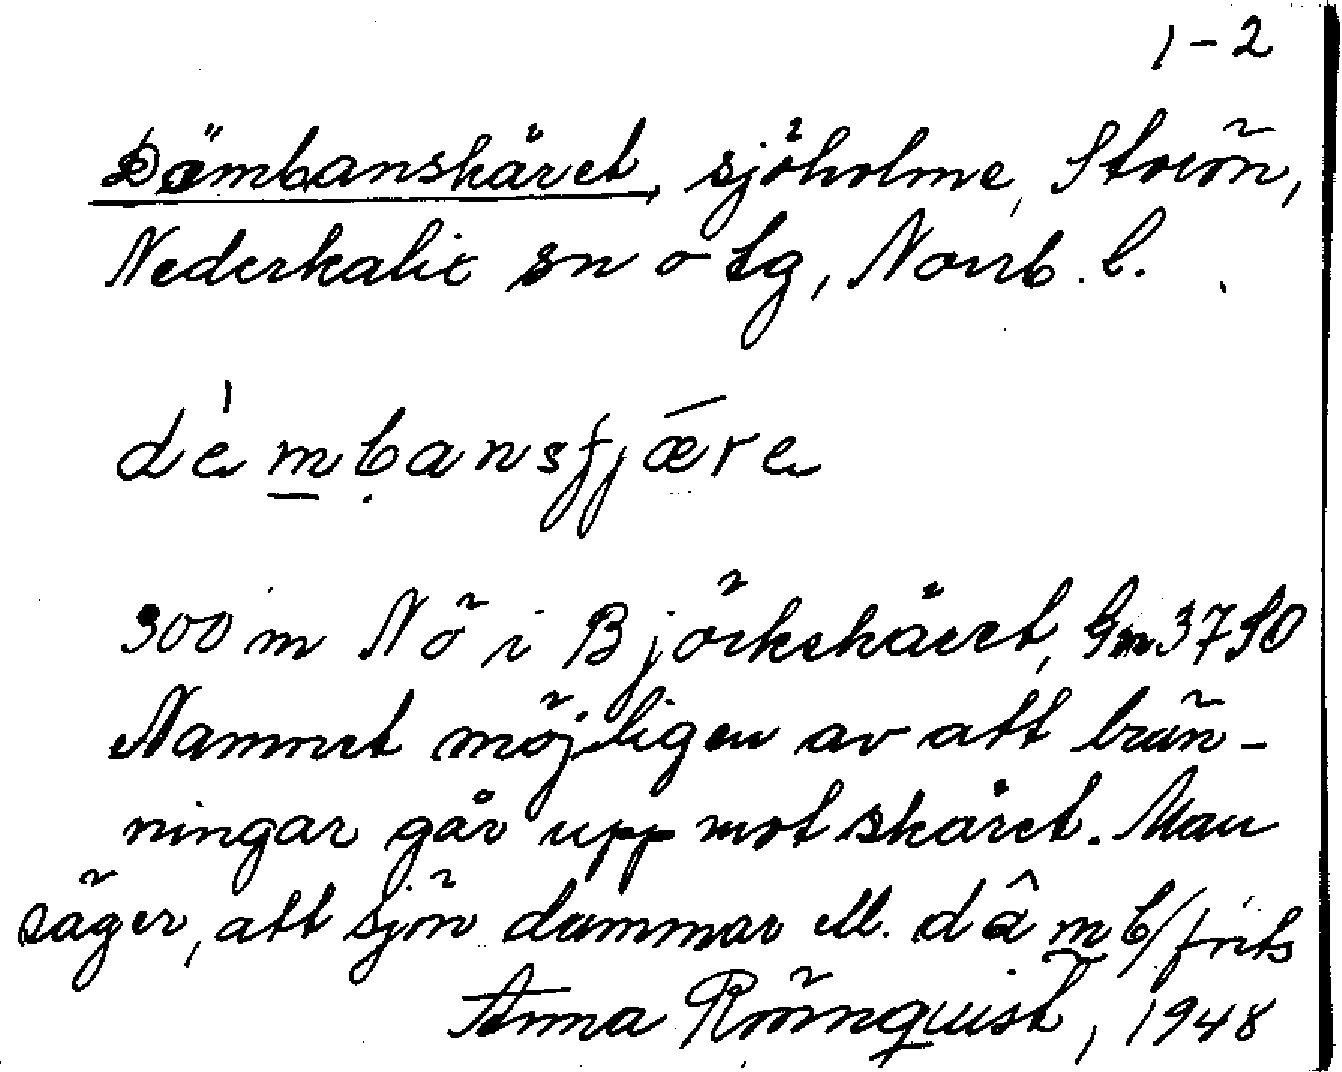 1-2
Dömbanskäret, sjöholme, Strön,
Nederkalix sn o tg, Norrb. l.
dèmbansfjǣre
300 m Nö i Björkskäret, Gm 3790
Namnet möjligen av att brän-
ningar går upp mot skäret. Man
säger, att sjön dammar ell. dâmb/
Anna Rönnquist, 1948